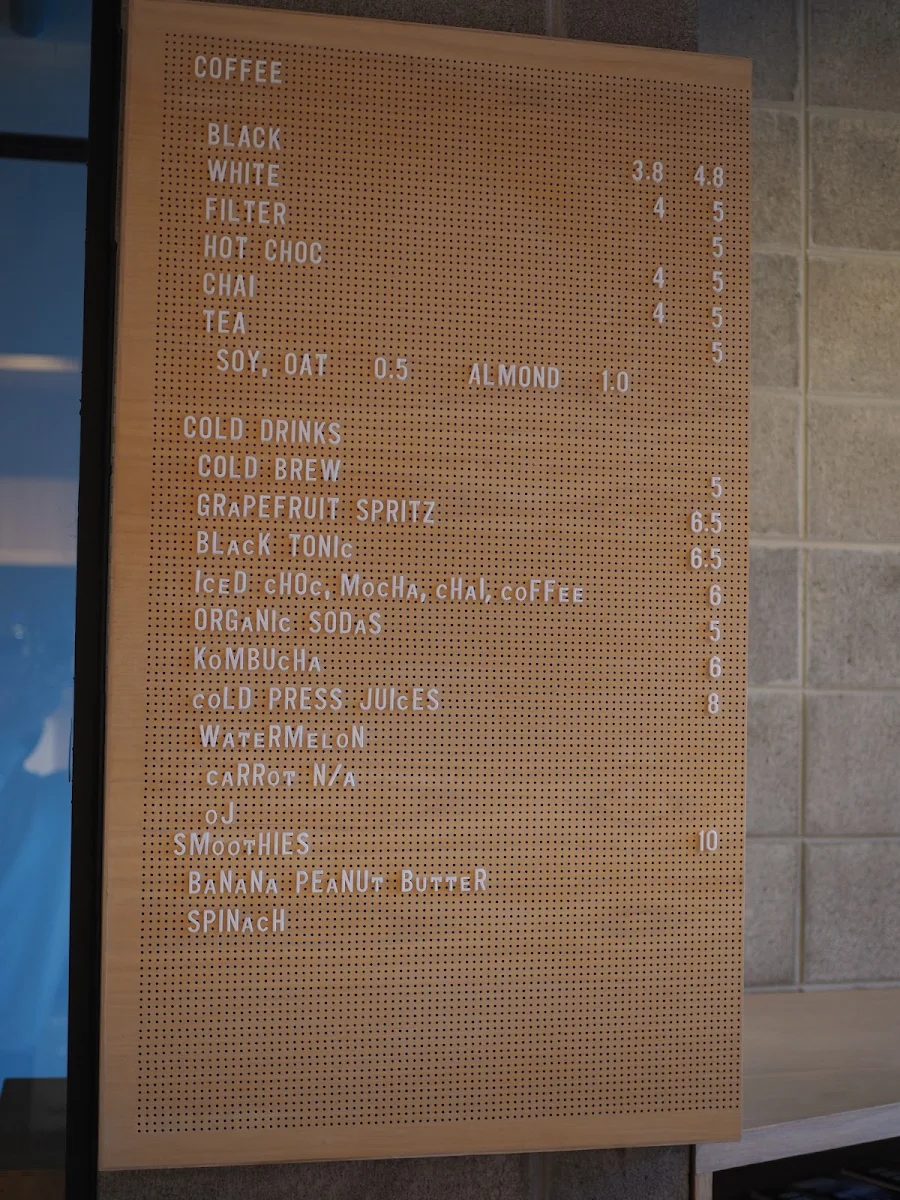 COFFEE
BLACK 3.8 4.8
WHITE 4 5
FILTER 5
HOT CHOC 4 5
CHAI 4 5
TEA 5
SOY, OAT 0.5 ALMOND 1.0
COLD DRINKS
COLD BREW 5
GRAPEFRUIT SPRITZ 6.5
BLACK TONIC 6.5
ICED CHOC, MOCHA, CHAI, COFFEE 6
ORGANIC SODAS 5
KOMBUCHA 6
COLD PRESS JUICES 8
WATERMELON
CARROT N/A
OJ
SMOOTHIES 10
BANANA PEANUT BUTTER
SPINACH